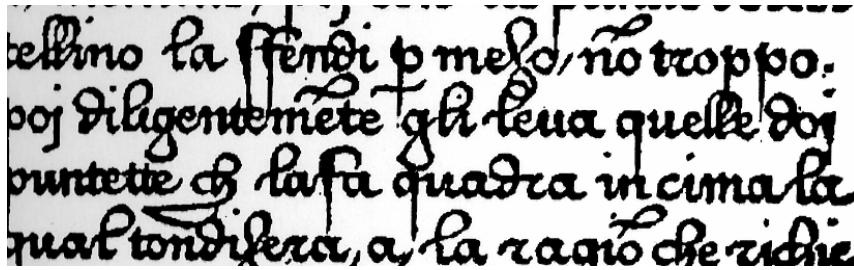 tellino la ffendi ꝑ mezo, nõ troppo.
poj diligentemẽte gli leua quelle doj
puntette ch lafa quadra in cima la
qual tondiſera, a, la ragiõ che richie